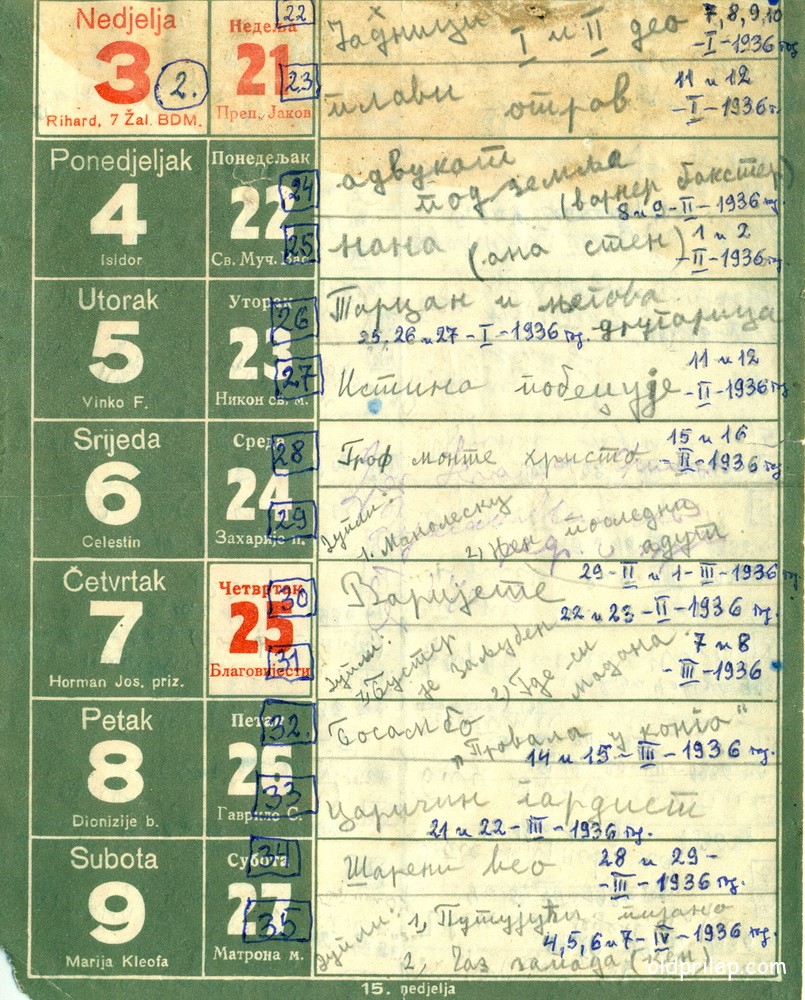 Nedjelja
3
2.
Rihard, 7 Žal. BDM.
Недеља
21
Преп. Јаков
22
Јадници I и II део
7, 8, 9, 10
-I-1936 год
23
плави отров
11 и 12
-I-1936 г.
Ponedjeljak
4
Isidor
Понедељак
22
Св. Муч. Вас
24
адвукат
под земља
(варнер бакстер)
8 и 9-II-1936 год.
25
нана (ана стен)
1 и 2
-II-1936 год.
Utorak
5
Vinko F.
Уторак
23
Никон св. м.
26
Тарцан и његова
другарица
25, 26 и 27-I-1936 год.
27
Истина побеђује
11 и 12
-II-1936 год.
Srijeda
6
Celestin
Среда
24
Захарије п.
28
Гроф монте христо
15 и 16
-II-1936 год
29
Дупли:
1. Манолеску
2, Кен последњи
адут.
Četvrtak
7
Horman Jos. priz.
Четвртак
25
Благовијести
29-II и 1-III-1936 год
30
Варијете
22 и 23-II-1936 год.
31
Дупли:
1, Бустер
је заљубен
2, Где си
мадона
7 и 8
-III-1936
Petak
8
Dionizije b.
Петак
26
Гаврило С.
32.
Босамбо
„Провала у конго"
14 и 15-III-1936 год.
33
царичин гардист
21 и 22-III-1936 год.
Subota
9
Marija Kleofa
Субота
27
Матрона м.
34
Шарени вео
28 и 29-
-III-1936 год.
35
Дупли:
1, Путујући
4, 5, 6 и 7-IV-1936 год.
2, Газ запада (Кен)
oldprilep.com
15. nedjelja